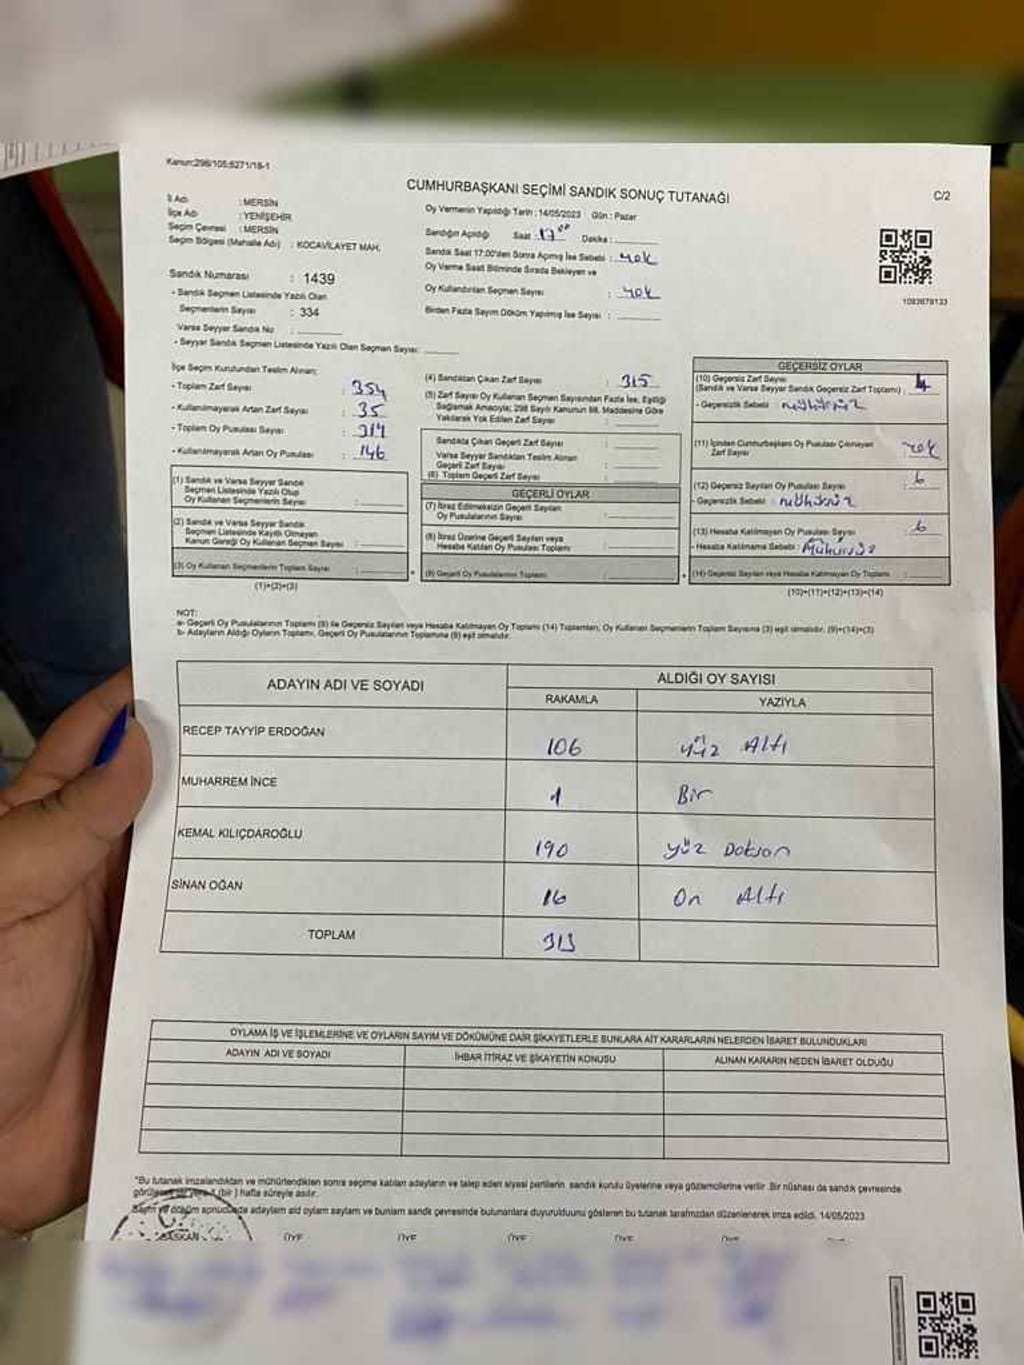 Kanun:298/105;6271/18-1
CUMHURBAŞKANI SEÇİMİ SANDIK SONUÇ TUTANAĞI
C/2
İl Adı : MERSİN
İlçe Adı : YENİŞEHİR
Seçim Çevresi : MERSİN
Seçim Bölgesi (Mahalle Adı) : KOCAVİLAYET MAH.
Sandık Numarası : 1439
- Sandık Seçmen Listesinde Yazılı Olan
Seçmenlerin Sayısı : 334
Varsa Seyyar Sandık No :
- Seyyar Sandık Seçmen Listesinde Yazılı Olan Seçmen Sayısı:
Oy Vermenin Yapıldığı Tarih : 14/05/2023 Gün : Pazar
Sandığın Açıldığı Saat : 17⁰⁰ Dakika :
Sandık Saat 17:00'den Sonra Açımış İse Sebebi : yok
Oy Verme Saat Bitiminde Sırada Bekleyen ve
Oy Kullandırılan Seçmen Sayısı : yok
Birden Fazla Sayım Döküm Yapılmış İse Sayısı :
1093679133
İlçe Seçim Kurulundan Teslim Alınan;
- Toplam Zarf Sayısı : 354
- Kullanılmayarak Artan Zarf Sayısı : 35
- Toplam Oy Pusulası Sayısı :
- Kullanılmayarak Artan Oy Pusulası : 146
(1) Sandık ve Varsa Seyyar Sandık
Seçmen Listesinde Yazılı Olup
Oy Kullanan Seçmenlerin Sayısı :
(2) Sandık ve Varsa Seyyar Sandık
Seçmen Listesinde Kayıtlı Olmayan
Kanun Gereği Oy Kullanan Seçmen Sayısı :
(3) Oy Kullanan Seçmenlerin Toplam Sayısı :
(1)+(2)=(3)
(4) Sandıktan Çıkan Zarf Sayısı : 315
(5) Zarf Sayısı Oy Kullanan Seçmen Sayısından Fazla İse, Eşitliği
Sağlamak Amacıyla; 298 Sayılı Kanunun 98. Maddesine Göre
Yakılarak Yok Edilen Zarf Sayısı :
Sandıkta Çıkan Geçerli Zarf Sayısı :
Varsa Seyyar Sandıktan Teslim Alınan
Geçerli Zarf Sayısı :
(6) Toplam Geçerli Zarf Sayısı :
GEÇERLİ OYLAR
(7) İtiraz Edilmeksizin Geçerli Sayılan
Oy Pusulalarının Sayısı :
(8) İtiraz Üzerine Geçerli Sayılan veya
Hesaba Katılan Oy Pusulası Toplamı :
(9) Geçerli Oy Pusulalarının Toplamı :
GEÇERSİZ OYLAR
(10) Geçersiz Zarf Sayısı
(Sandık ve Varsa Seyyar Sandık Geçersiz Zarf Toplamı) :
- Geçersizlik Sebebi : mühürsüz
(11) İçinden Cumhurbaşkanı Oy Pusulası Çıkmayan
Zarf Sayısı : yok
(12) Geçersiz Sayılan Oy Pusulası Sayısı : 6
- Geçersizlik Sebebi : mühürsüz
(13) Hesaba Katılmayan Oy Pusulası Sayısı : 6
- Hesaba Katılmama Sebebi : Mühürsüz
(14) Geçersiz Sayılan veya Hesaba Katılmayan Oy Toplamı :
(10)+(11)+(12)+(13)=(14)
NOT:
a- Geçerli Oy Pusulalarının Toplamı (9) ile Geçersiz Sayılan veya Hesaba Katılmayan Oy Toplamı (14) Toplamları, Oy Kullanan Seçmenlerin Toplam Sayısına (3) eşit olmalıdır. (9)+(14)=(3)
b- Adayların Aldığı Oyların Toplamı, Geçerli Oy Pusulalarının Toplamına (9) eşit olmalıdır.
ADAYIN ADI VE SOYADI
ALDIĞI OY SAYISI
RAKAMLA YAZIYLA
RECEP TAYYİP ERDOĞAN 106 yüz Altı
MUHARREM İNCE 1 Bir
KEMAL KILIÇDAROĞLU 190 yüz Doksan
SİNAN OĞAN 16 On Altı
TOPLAM 313
OYLAMA İŞ VE İŞLEMLERİNE VE OYLARIN SAYIM VE DÖKÜMÜNE DAİR ŞİKAYETLERLE BUNLARA AİT KARARLARIN NELERDEN İBARET BULUNDUKLARI
ADAYIN ADI VE SOYADI İHBAR İTİRAZ VE ŞİKAYETİN KONUSU ALINAN KARARIN NEDEN İBARET OLDUĞU
"Bu tutanak imzalandıktan ve mühürlendikten sonra seçime katılan adayların ve talep eden siyasi partilerin sandık kurulu üyelerine veya gözlemcilerine verilir. Bir nüshası da sandık çevresinde
görülecek bir yere 1 (bir) hafta süreyle asılır.
Sayım ve döküm sonucunda adayların aldığı oyların sayıları ve bunların sandık çevresinde bulunanlara duyurulduğunu gösteren bu tutanak tarafımızdan düzenlenerek imza edildi. 14/05/2023
BAŞKAN ÜYE ÜYE ÜYE ÜYE ÜYE